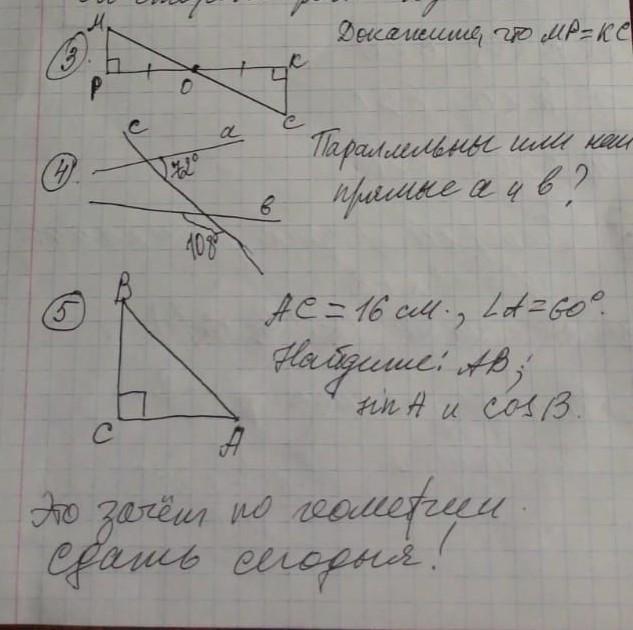 3 Докажите, что MP=KC
M
P
O
K
C
4 Параллельны или нет
прямые a и в?
c
a
72°
в
108°
5 AC = 16 см., ∠A=60°.
Найдите: AB;
sin A и cos B.
B
C
A
Это зачёт по геометрии.
Сдать сегодня!